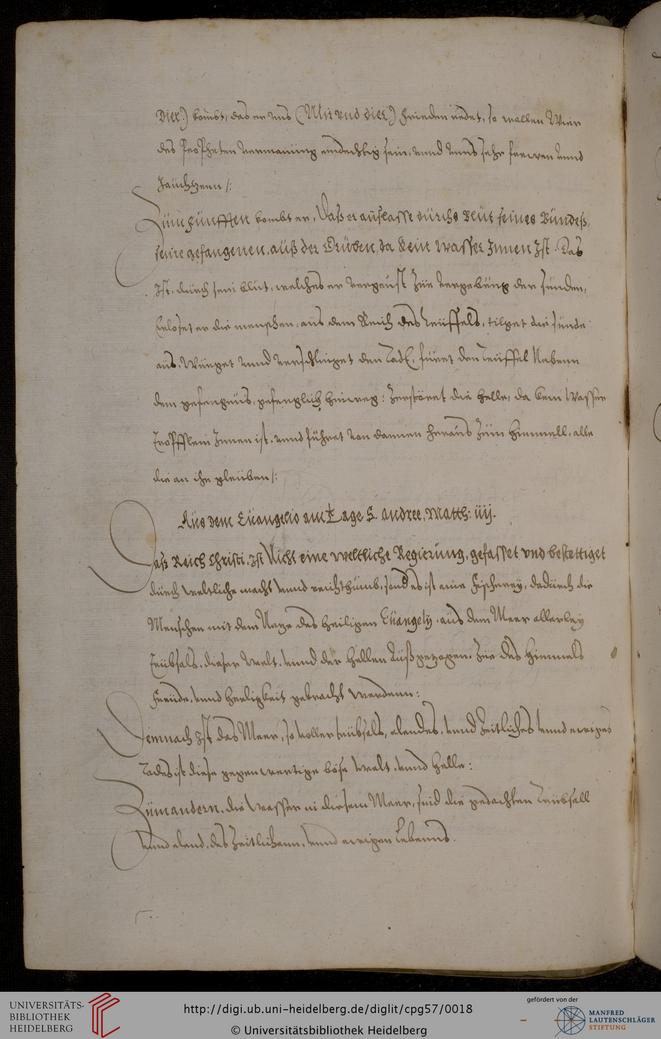 Dier) kombt, das er uns (Mir vnd dier) frieden redet, so wollen Wier
des Propheten vermanung eindechtig sein, vnnd vnns sehr frewen vnnd
Jauchtzenn /:
Zum fünfften kombt er, Daß er auslasse durchs Blut seines Bundeß,
seine gefangenen, auß der Gruben, da Kein wasser Innen Ist. Das
Ist, durch sein blut, welches er vergeust zur vergebung der sunden,
Erloset er die menschen, aus dem Reich des teuffels, tilget die sunde
aus, Würget vnnd verschlinget den Todt, füret den teuffel Nebenn
dem gefengnus, gefenglich hinweg: Zerstöret die helle, da kein Wasser
Tröpfflein Innen ist, vnnd führet von dannen heraus Zum himmell, alle
die an ihn gleuben /:
Aus dem Euangelio am Tage S. Andree, Matth: iiij.
Daß Reich Christi, Ist Nicht eine weltliche Regierung, gefasset vnd bestettiget
durch weltliche macht vnnd reichthumb, sondern es ist eine fischerey, dadurch die
Menschen mit dem Netze des heiligen Euangelij, aus dem Meer allerley
Trübsals, dieser Welt, vnnd der hellen außgezogen, zue des himmels
freude, vnnd herligkeit gebracht werdenn:
Demnach Ist das Meer, so voller trübsals, elendes, vnnd zeitliches vnnd ewiges
Todes ist diese gegenwertige böse welt, vnnd helle:
Zum andern, die Wasser in diesem Meer, sind die gedachten Trübsall
vnnd elend, des zeitlichenn, vnnd ewigen Lebenns.
UNIVERSITÄTS-
BIBLIOTHEK
HEIDELBERG
http://digi.ub.uni-heidelberg.de/diglit/cpg57/0018
© Universitätsbibliothek Heidelberg
gefördert von der
MANFRED
LAUTENSCHLÄGER
STIFTUNG